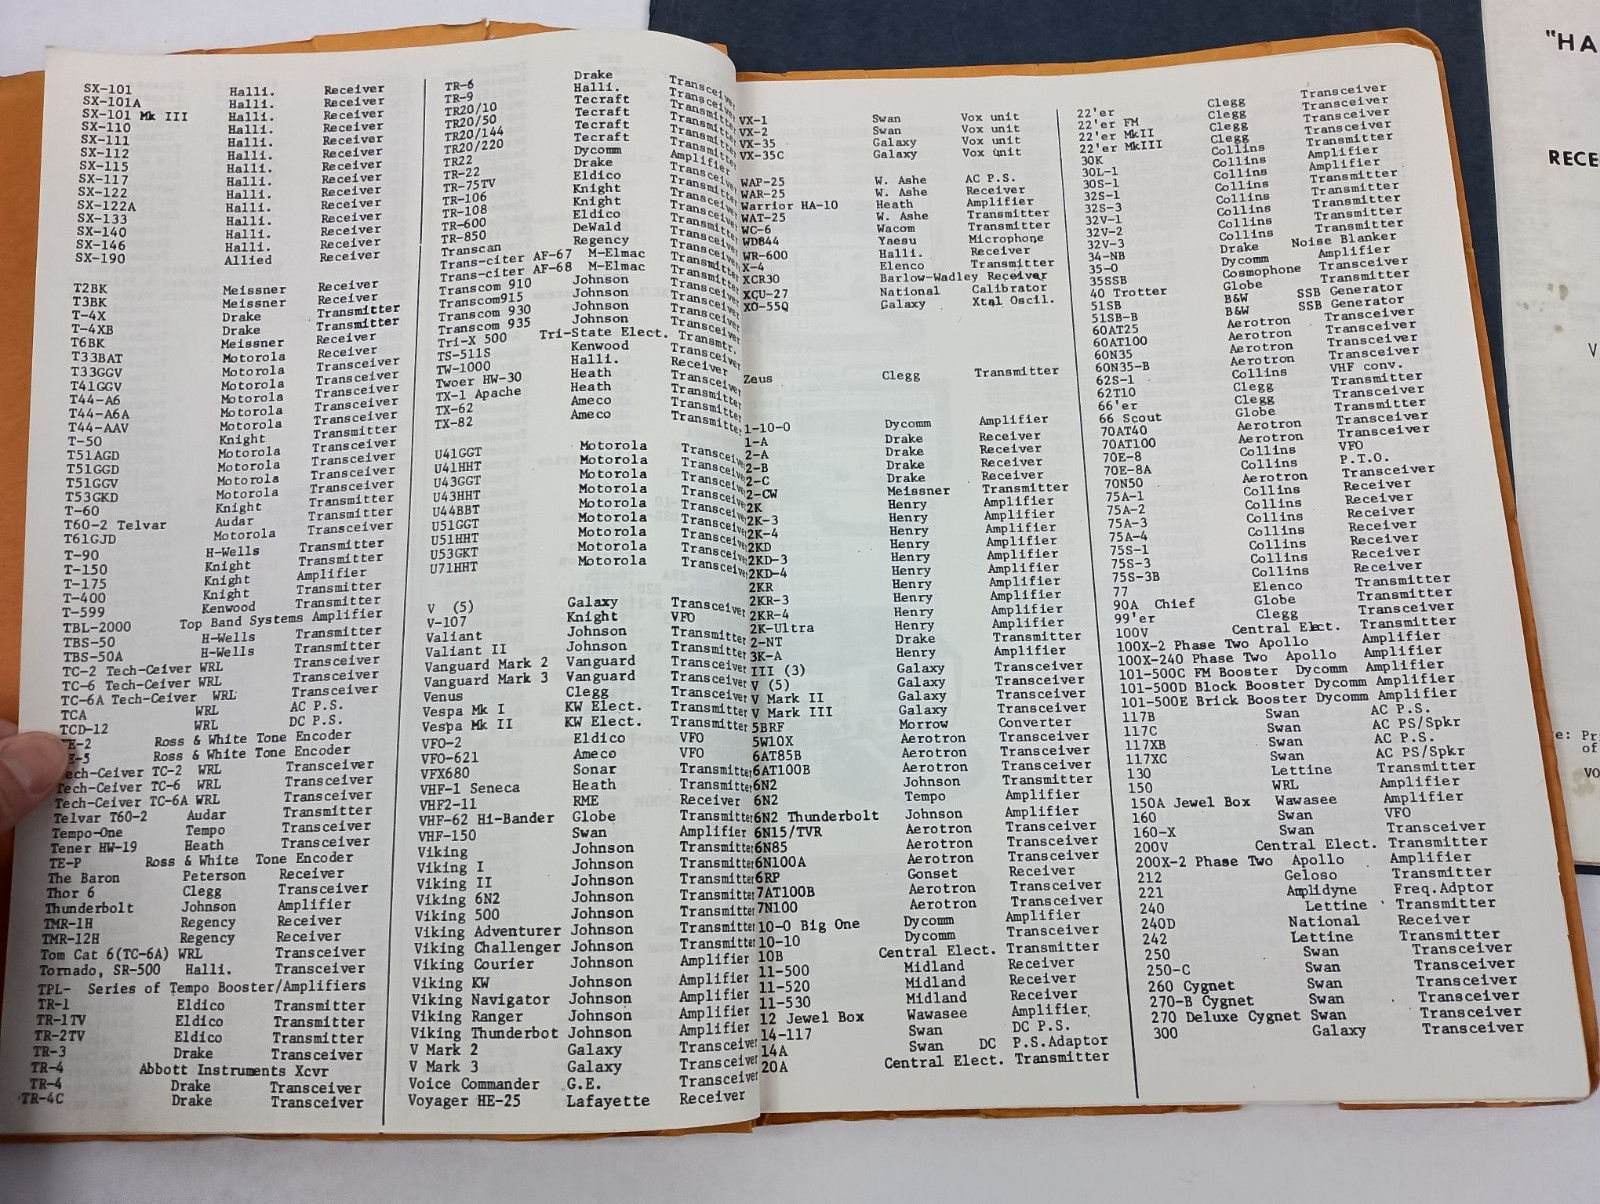 SX-101 Halli. Receiver
SX-101A Halli. Receiver
SX-101 Mk III Halli. Receiver
SX-110 Halli. Receiver
SX-111 Halli. Receiver
SX-112 Halli. Receiver
SX-115 Halli. Receiver
SX-117 Halli. Receiver
SX-122 Halli. Receiver
SX-122A Halli. Receiver
SX-133 Halli. Receiver
SX-140 Halli. Receiver
SX-146 Halli. Receiver
SX-190 Allied Receiver
T2BK Meissner Receiver
T3BK Meissner Receiver
T-4X Drake Transmitter
T-4XB Drake Transmitter
T6BK Meissner Receiver
T33BAT Motorola Receiver
T33GGV Motorola Transceiver
T41GGV Motorola Transceiver
T44-A6 Motorola Transceiver
T44-A6A Motorola Transceiver
T44-AAV Motorola Transceiver
T-50 Knight Transmitter
T51AGD Motorola Transceiver
T51GGD Motorola Transceiver
T51GGV Motorola Transceiver
T53GKD Motorola Transceiver
T-60 Knight Transmitter
T60-2 Telvar Audar Transmitter
T61GJD Motorola Transceiver
T-90 H-Wells Transmitter
T-150 Knight Transmitter
T-175 Knight Amplifier
T-400 Knight Transmitter
T-599 Kenwood Transmitter
TBL-2000 Top Band Systems Amplifier
TBS-50 H-Wells Transmitter
TBS-50A H-Wells Transmitter
TC-2 Tech-Ceiver WRL Transceiver
TC-6 Tech-Ceiver WRL Transceiver
TC-6A Tech-Ceiver WRL Transceiver
TCA WRL AC P.S.
TCD-12 WRL DC P.S.
E-2 Ross & White Tone Encoder
E-5 Ross & White Tone Encoder
ech-Ceiver TC-2 WRL Transceiver
Tech-Ceiver TC-6 WRL Transceiver
Tech-Ceiver TC-6A WRL Transceiver
Telvar T60-2 Audar Transmitter
Tempo-One Tempo Transceiver
Tener HW-19 Heath Transceiver
TE-P Ross & White Tone Encoder
The Baron Peterson Receiver
Thor 6 Clegg Transceiver
Thunderbolt Johnson Amplifier
TMR-1H Regency Receiver
TMR-12H Regency Receiver
Tom Cat 6(TC-6A) WRL Transceiver
Tornado, SR-500 Halli. Transceiver
TPL- Series of Tempo Booster/Amplifiers
TR-1 Eldico Transmitter
TR-1TV Eldico Transmitter
TR-2TV Eldico Transmitter
TR-3 Drake Transceiver
TR-4 Abbott Instruments Xcvr
TR-4 Drake Transceiver
TR-4C Drake Transceiver
TR-6 Drake Transceiver
TR-9 Halli. Transceiver
TR20/10 Tecraft Transmitter
TR20/50 Tecraft Transmitter
TR20/144 Tecraft Transmitter
TR20/220 Tecraft Transmitter
TR22 Dycomm Amplifier
TR-22 Drake Transceiver
TR-75TV Eldico Transmitter
TR-106 Knight Transceiver
TR-108 Knight Transceiver
TR-600 Eldico Transceiver
TR-850 DeWald Transceiver
Transcan Regency Transceiver
Trans-citer AF-67 M-Elmac Transmitter
Trans-citer AF-68 M-Elmac Transmitter
Transcom 910 Johnson Transceiver
Transcom915 Johnson Transceiver
Transcom 930 Johnson Transceiver
Transcom 935 Johnson Transceiver
Tri-X 500 Tri-State Elect. Transmtr.
TS-511S Kenwood Transceiver
TW-1000 Halli. Receiver
Twoer HW-30 Heath Transceiver
TX-1 Apache Heath Transmitter
TX-62 Ameco Transmitter
TX-82 Ameco Transmitter
U41GGT Motorola Transceiver
U41HHT Motorola Transceiver
U43GGT Motorola Transceiver
U43HHT Motorola Transceiver
U44BBT Motorola Transceiver
U51GGT Motorola Transceiver
U51HHT Motorola Transceiver
U53GKT Motorola Transceiver
U71HHT Motorola Transceive
V (5) Galaxy Transceiver
V-107 Knight VFO
Valiant Johnson Transmitter
Valiant II Johnson Transmitter
Vanguard Mark 2 Vanguard Transceiver
Vanguard Mark 3 Vanguard Transceiver
Venus Clegg Transceiver
Vespa Mk I KW Elect. Transmitter
Vespa Mk II KW Elect. Transmitter
VFO-2 Eldico VFO
VFO-621 Ameco VFO
VFX680 Sonar Transmitte
VHF-1 Seneca Heath Transmitte
VHF2-11 RME Receiver
VHF-62 Hi-Bander Globe Transmitte
VHF-150 Swan Amplifier
Viking Johnson Transmitte
Viking I Johnson Transmitte
Viking II Johnson Transmitte
Viking 6N2 Johnson Transmitte
Viking 500 Johnson Transmitte
Viking Adventurer Johnson Transmitte
Viking Challenger Johnson Transmitte
Viking Courier Johnson Amplifier
Viking KW Johnson Amplifier
Viking Navigator Johnson Transmitte
Viking Ranger Johnson Transmitte
Viking Thunderbot Johnson Amplifier
V Mark 2 Galaxy Transceive
V Mark 3 Galaxy Transceive
Voice Commander G.E. Transceive
Voyager HE-25 Lafayette Receiver
VX-1 Swan Vox unit
VX-2 Swan Vox unit
VX-35 Galaxy Vox unit
VX-35C Galaxy Vox unit
WAP-25 W. Ashe AC P.S.
WAR-25 W. Ashe Receiver
Warrior HA-10 Heath Amplifier
WAT-25 W. Ashe Transmitter
WC-6 Wacom Transmitter
WD844 Yaesu Microphone
WR-600 Halli. Receiver
X-4 Elenco Transmitter
XCR30 Barlow-Wadley Receiver
XCU-27 National Calibrator
XO-55Q Galaxy Xtal Oscil.
Zeus Clegg Transmitter
1-10-0 Dycomm Amplifier
1-A Drake Receiver
2-A Drake Receiver
2-B Drake Receiver
2-C Drake Receiver
2-CW Meissner Transmitter
2K Henry Amplifier
2K-3 Henry Amplifier
2K-4 Henry Amplifier
2KD Henry Amplifier
2KD-3 Henry Amplifier
2KD-4 Henry Amplifier
2KR Henry Amplifier
2KR-3 Henry Amplifier
2KR-4 Henry Amplifier
2K-Ultra Henry Amplifier
2-NT Drake Transmitter
3K-A Henry Amplifier
III (3) Galaxy Transceiver
V (5) Galaxy Transceiver
V Mark II Galaxy Transceiver
V Mark III Galaxy Transceiver
5BRF Morrow Converter
5W10X Aerotron Transceiver
6AT85B Aerotron Transceiver
6AT100B Aerotron Transceiver
6N2 Johnson Transmitter
6N2 Tempo Amplifier
6N2 Thunderbolt Johnson Amplifier
6N15/TVR Aerotron Transceiver
6N85 Aerotron Transceiver
6N100A Aerotron Transceiver
6RP Gonset Receiver
7AT100B Aerotron Transceiver
7N100 Aerotron Transceiver
10-0 Big One Dycomm Amplifier
10-10 Dycomm Amplifier
10B Central Elect. Transmitter
11-500 Midland Receiver
11-520 Midland Receiver
11-530 Midland Receiver
12 Jewel Box Wawasee Amplifier
14-117 Swan DC P.S.
14A Swan DC P.S.Adaptor
20A Central Elect. Transmitter
22'er Clegg Transceiver
22'er FM Clegg Transceiver
22'er MkII Clegg Transceiver
22'er MkIII Clegg Transceiver
30K Collins Transmitter
30L-1 Collins Amplifier
30S-1 Collins Amplifier
32S-1 Collins Transmitter
32S-3 Collins Transmitter
32V-1 Collins Transmitter
32V-2 Collins Transmitter
32V-3 Collins Transmitter
34-NB Drake Noise Blanker
35-O Dycomm Amplifier
35SSB Cosmophone Transceiver
40 Trotter Globe Transmitter
51SB B&W SSB Generator
51SB-B B&W SSB Generator
60AT25 Aerotron Transceiver
60AT100 Aerotron Transceiver
60N35 Aerotron Transceiver
60N35-B Aerotron Transceiver
62S-1 Collins VHF conv.
62T10 Clegg Transmitter
66'er Clegg Transceiver
66 Scout Globe Transmitter
70AT40 Aerotron Transceiver
70AT100 Aerotron Transceiver
70E-8 Collins VFO
70E-8A Collins P.T.O.
70N50 Aerotron Transceiver
75A-1 Collins Receiver
75A-2 Collins Receiver
75A-3 Collins Receiver
75A-4 Collins Receiver
75S-1 Collins Receiver
75S-3 Collins Receiver
75S-3B Collins Receiver
77 Elenco Transmitter
90A Chief Globe Transmitter
99'er Clegg Transceiver
100V Central Elect. Transmitter
100X-2 Phase Two Apollo Amplifier
100X-240 Phase Two Apollo Amplifier
101-500C FM Booster Dycomm Amplifier
101-500D Block Booster Dycomm Amplifier
101-500E Brick Booster Dycomm Amplifier
117B Swan AC P.S.
117C Swan AC PS/Spkr
117XB Swan AC P.S.
117XC Swan AC PS/Spkr
130 Lettine Transmitter
150 WRL Amplifier
150A Jewel Box Wawasee Amplifier
160 Swan VFO
160-X Swan Transceiver
200V Central Elect. Transmitter
200X-2 Phase Two Apollo Amplifier
212 Geloso Transmitter
221 Amplidyne Freq.Adptor
240 Lettine Transmitter
240D National Receiver
242 Lettine Transmitter
250 Swan Transceiver
250-C Swan Transceiver
260 Cygnet Swan Transceiver
270-B Cygnet Swan Transceiver
270 Deluxe Cygnet Swan Transceiver
300 Galaxy Transceiver
"HA
RECE
V
e: Pr
of
VO